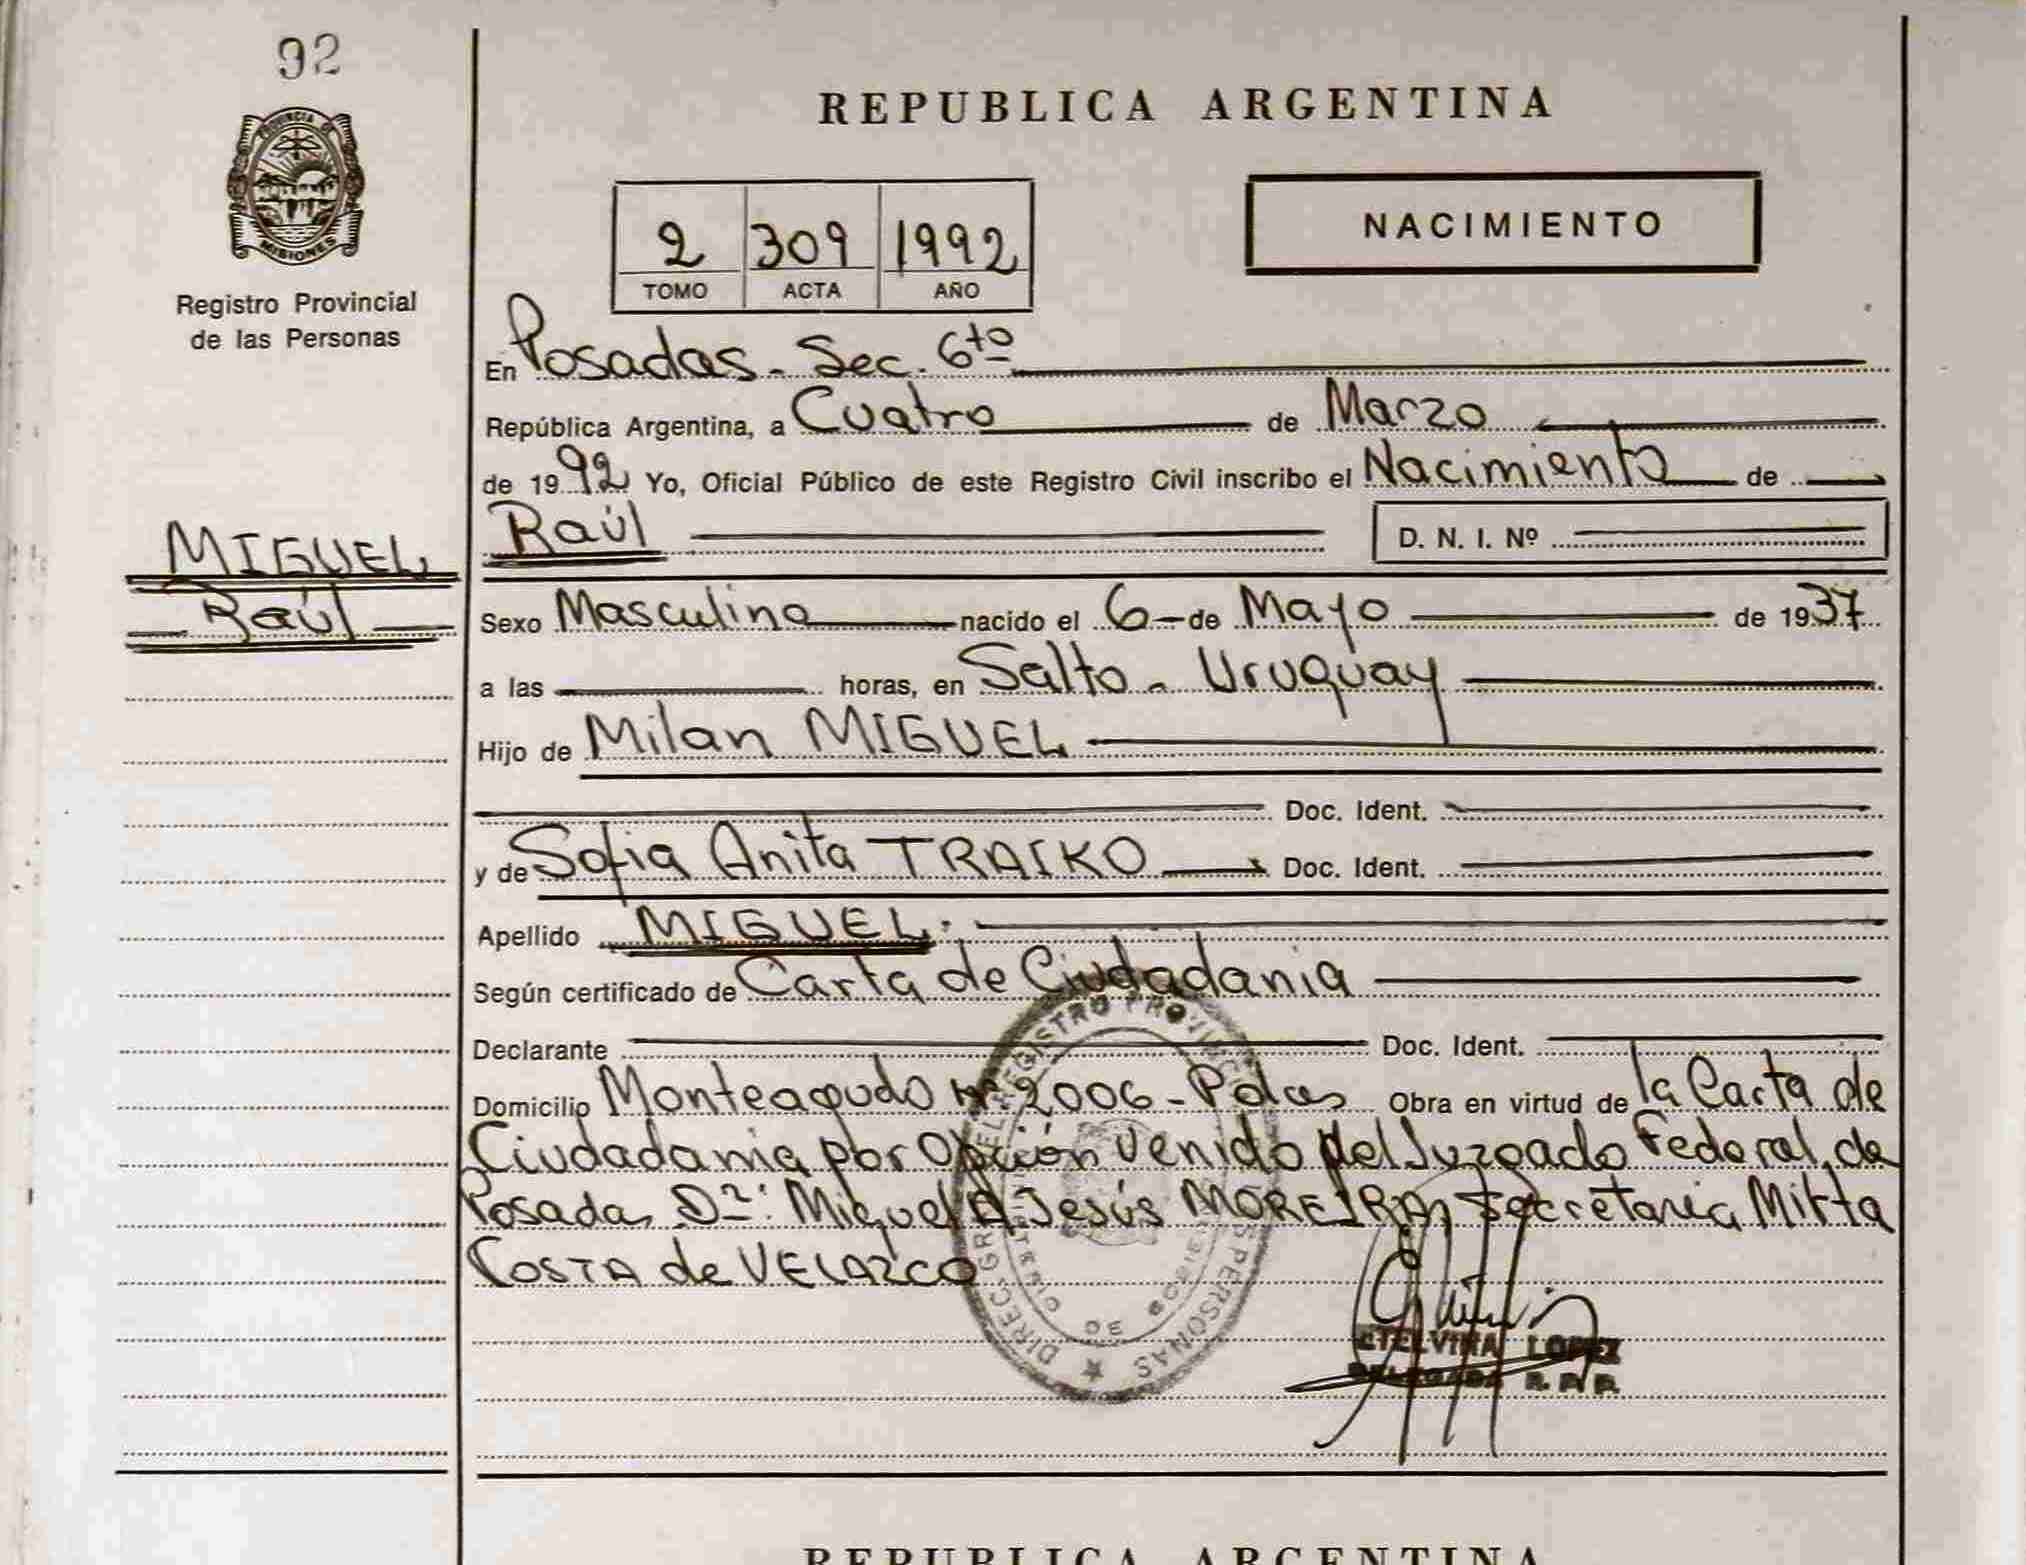 92
PROVINCIA DE
MISIONES
Registro Provincial
de las Personas
MIGUEL
Raúl
REPUBLICA ARGENTINA
2 309 1992
TOMO ACTA AÑO
NACIMIENTO
En Posadas - Sec. 6to
República Argentina, a Cuatro de Marzo
de 1992 Yo, Oficial Público de este Registro Civil inscribo el Nacimiento de
Raúl D. N. I. Nº
Sexo Masculino nacido el 6 de Mayo de 1937
a las horas, en Salto - Uruguay
Hijo de Milan MIGUEL
Doc. Ident.
y de Sofia Anita TRAIKO Doc. Ident.
Apellido MIGUEL.
Según certificado de Carta de Ciudadania
Declarante Doc. Ident.
Domicilio Monteagudo Nº 2006 - Pdas Obra en virtud de la Carta de
Ciudadania por Opción venido del Juzgado Federal de
Posadas Dr: Miguel A. Jesús MOREIRA, Secretaria Mirta
COSTA de VELAZCO
DIREC. GRAL. DEL REGISTRO PROVINCIAL PERSONAS
ETELVINA LOPEZ
DELEGADA R. P. P.
REPUBLICA ARGENTINA